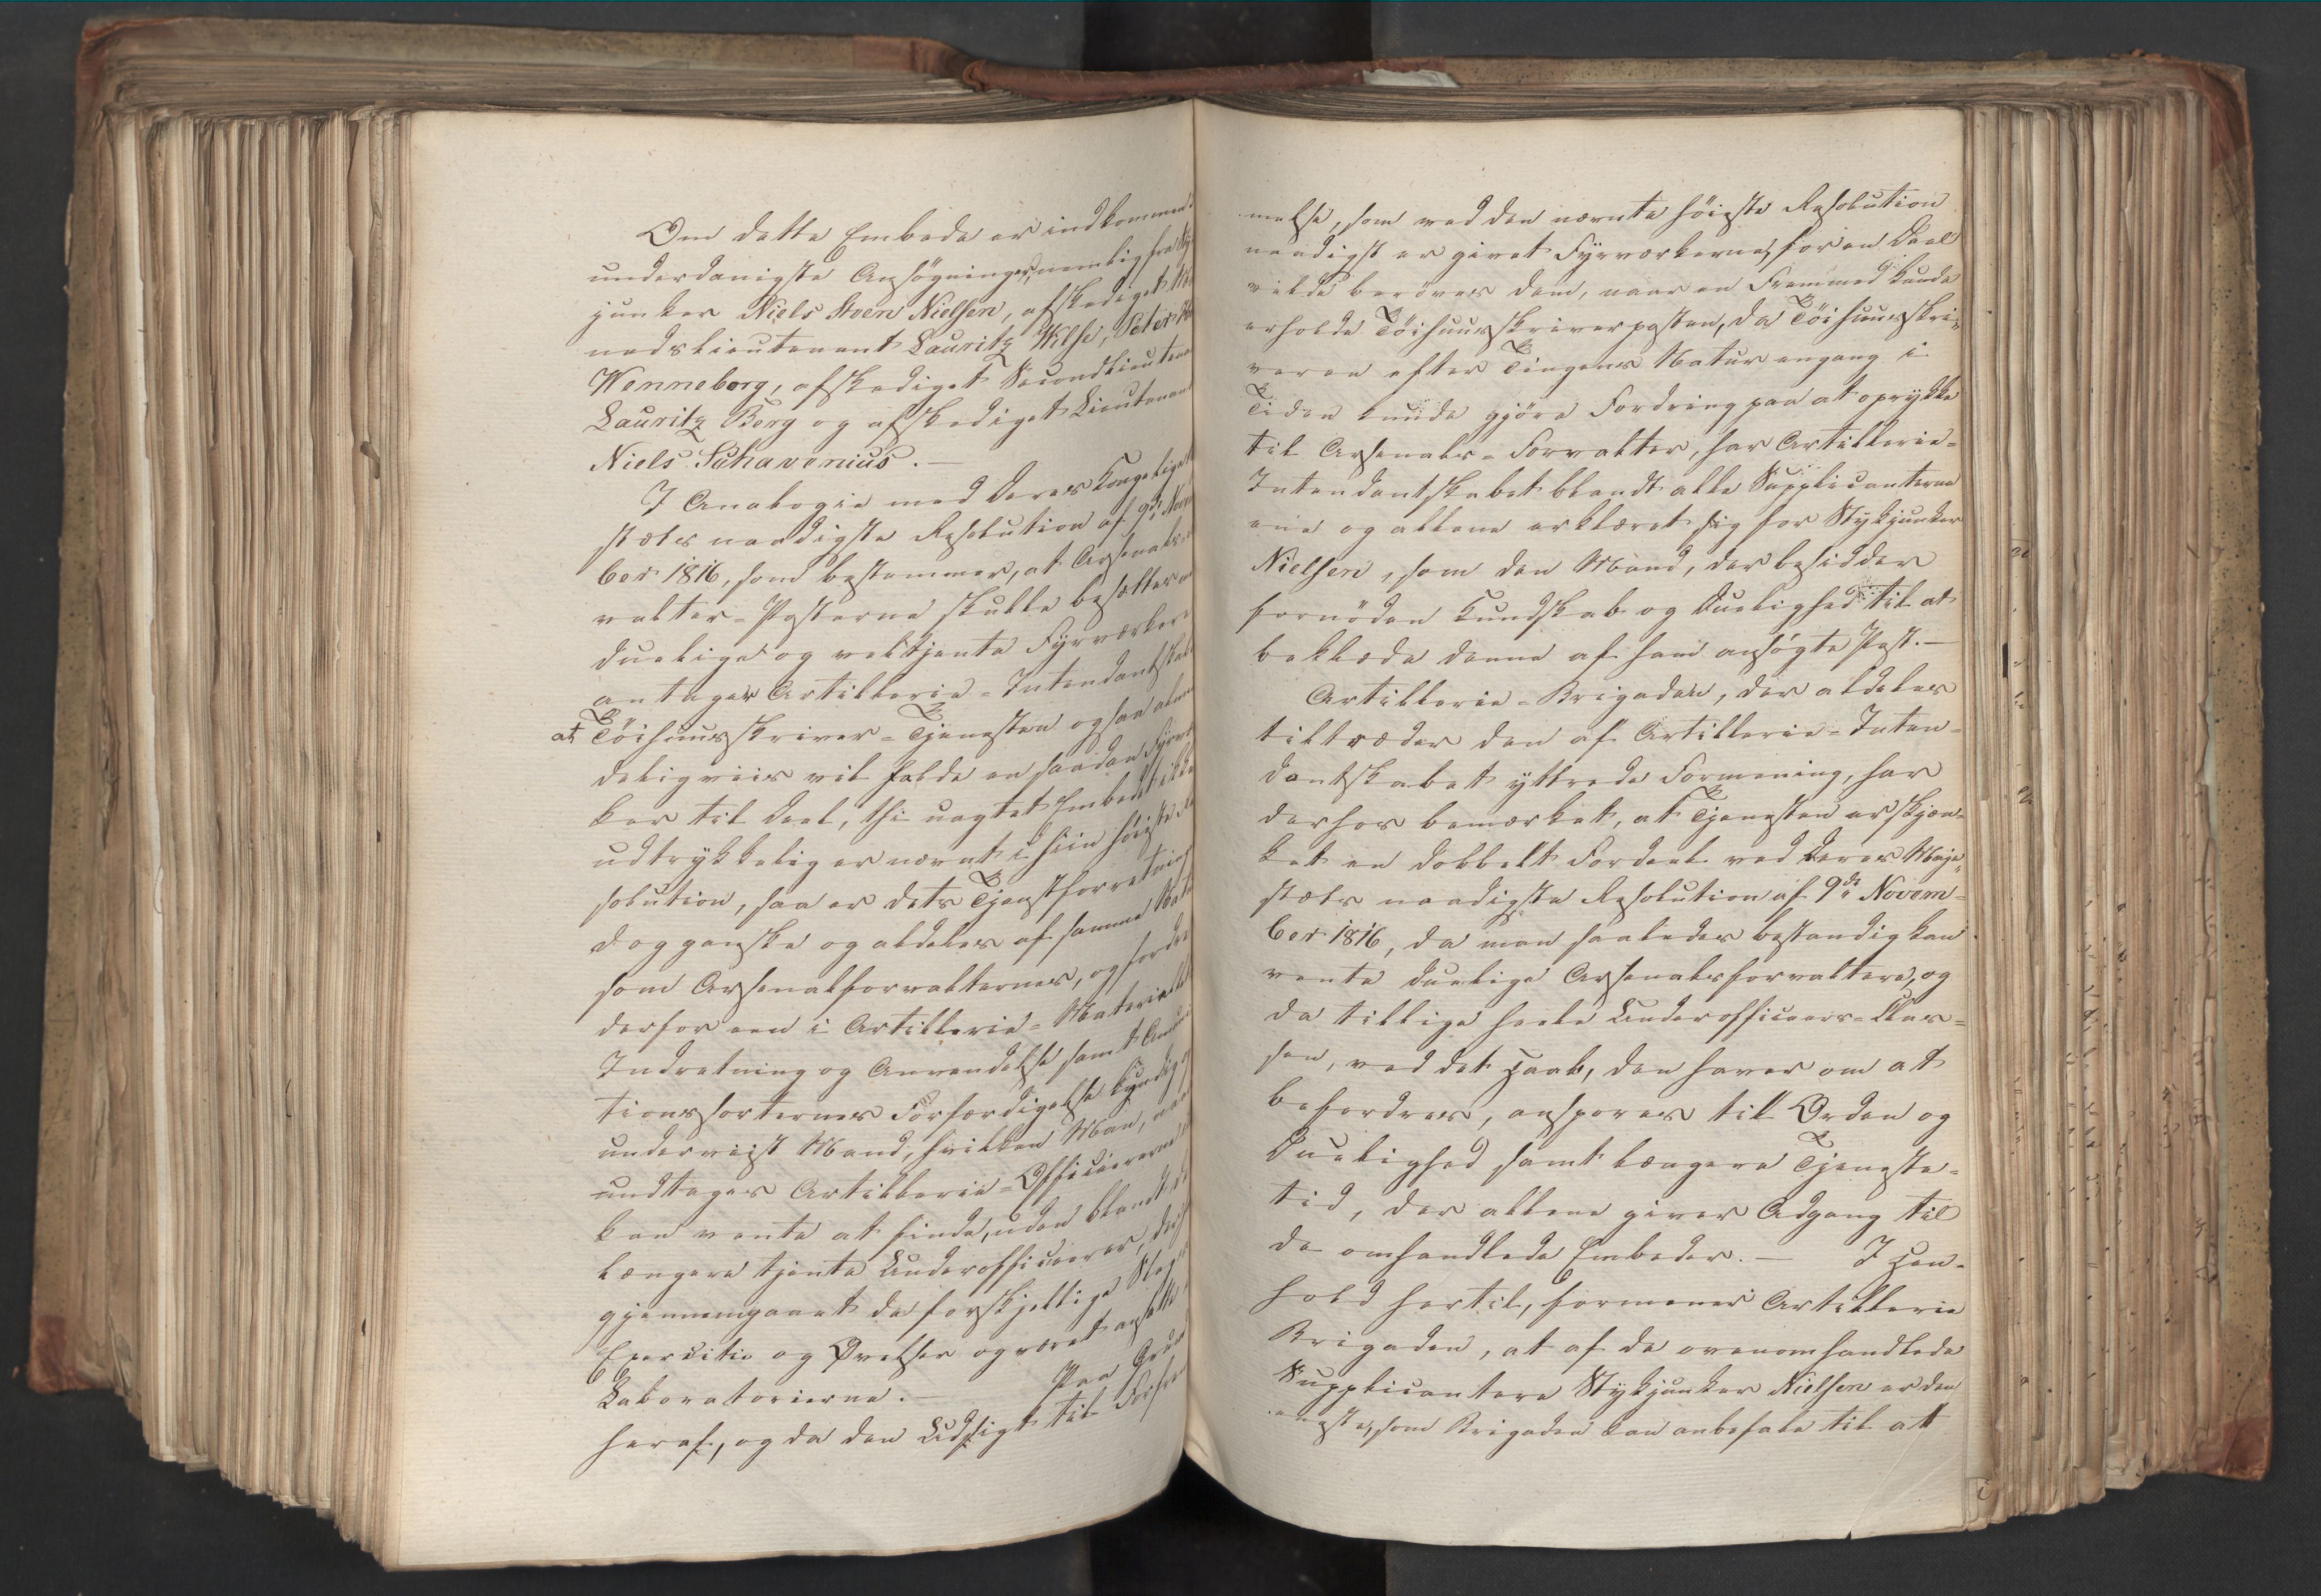 Om dette Embede er indkommen
underdanigste Ansøgninger, nemlig fra Styk
junker Niels Sven Nielsen, afskediget
nedslieutenant Lauritz Welse, Peter
Wenneborg, afskediget Secondlieutena
Lauritz Berg og afskediget Lieutenan
Niels Schavenius. —
I Analogie med Deres Kongelige
stæts naadigste Resolution af 9de Novem
ber 1816, som bestemmer, at Arsenals-
valter-Posterne skulle besættes
duelige og veltjente Fyrværkere
antager Artillerie-Intendantskab
at Töihuusskriver-Tjenesten ogsaa alm
deligviis vil falde en saadan Fyrvær
ker til Deel, thi uagtet Embedet ikke
udtrykkelig er nævnt i hiin høieste Re
solution, saa er dets Tjenstforretning
dog ganske og aldeles af samme Natu
som Arsenalforvalternes, og fordre
derfor een i Artillerie-Materiellets
Indretning og Anvendelse samt Ammu
tionssorternes Forfærdigelse kyndig og
underviist Mand, hvilken Man, naar
undtages Artillerie-Officiererne
kan vente at finde, uden blandt de
længere tjente Underofficierer, der
gjennemgaaet de forskjellige Slags
Exercitie og Øvelser og været ansatte
Laboratorierne. — Paa Grund
heraf, og da den Udsigt til Forfrem
melse, som ved den nævnte höieste Resolution
naadigst er givet Fyrværkerne, for en Deel
vilde berøves dem, naar en Fremmed kunde
erholde Töihuusskriverposten, da Töihuusskri-
veren efter Tingenes Natur engang i
Tiden kunde gjöre Fordring paa at oprykke
til Arsenals-Forvalter, har Artillerie-
Intendantskabet blandt alle Supplicanterne
ene og allene erklæret sig for Stykjunker
Nielsen, som den Mand, der besidder
fornöden Kundskab og Duelighed til at
beklæde denne af ham ansögte Post. —
Artillerie-Brigaden, der aldeles
tiltræder den af Artillerie-Inten-
dantskabet yttrede Formening, har
derhos bemærket, at Tjenesten er skjæn-
ket en dobbelt Fordeel ved Deres Maje-
stæts naadigste Resolution af 9de Novem-
ber 1816, da man saaledes bestandig kan
vente duelige Arsenalsforvaltere, og
da tillige heele Underofficeers-Clas-
sen, ved det Haab, den haver om at
befordres, anspores til Orden og
Duelighed samt længere Tjeneste-
tid, der allene giver Adgang til
de omhandlede Embeder. — I Hen-
hold hertil, formener Artillerie
Brigaden, at af de ovenomhandlede
Supplicantere Stykjunker Nielsen er den
eneste, som Brigaden kan anbefale til at